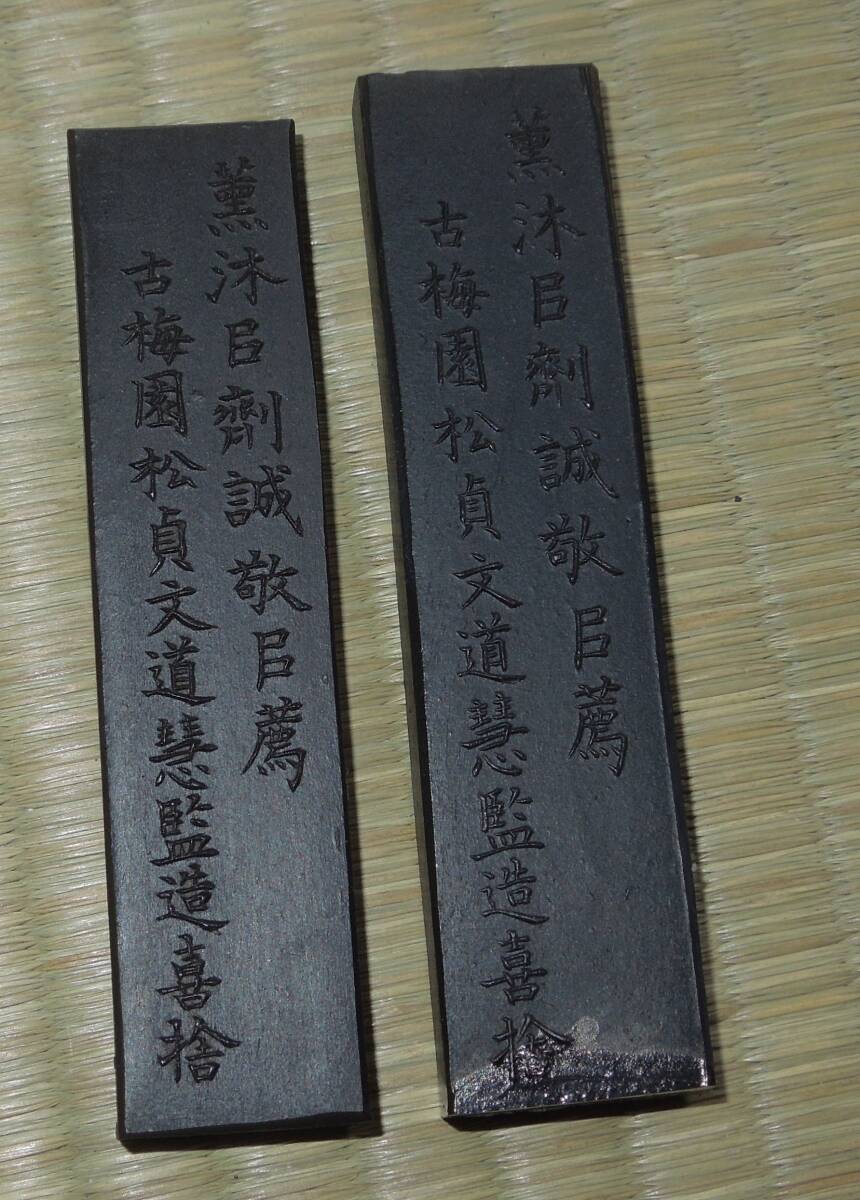 薫沐㠯劑誠敬㠯薦
古梅園松貞文道慧監造喜捨
薫沐㠯劑誠敬㠯薦
古梅園松貞文道慧監造喜捨